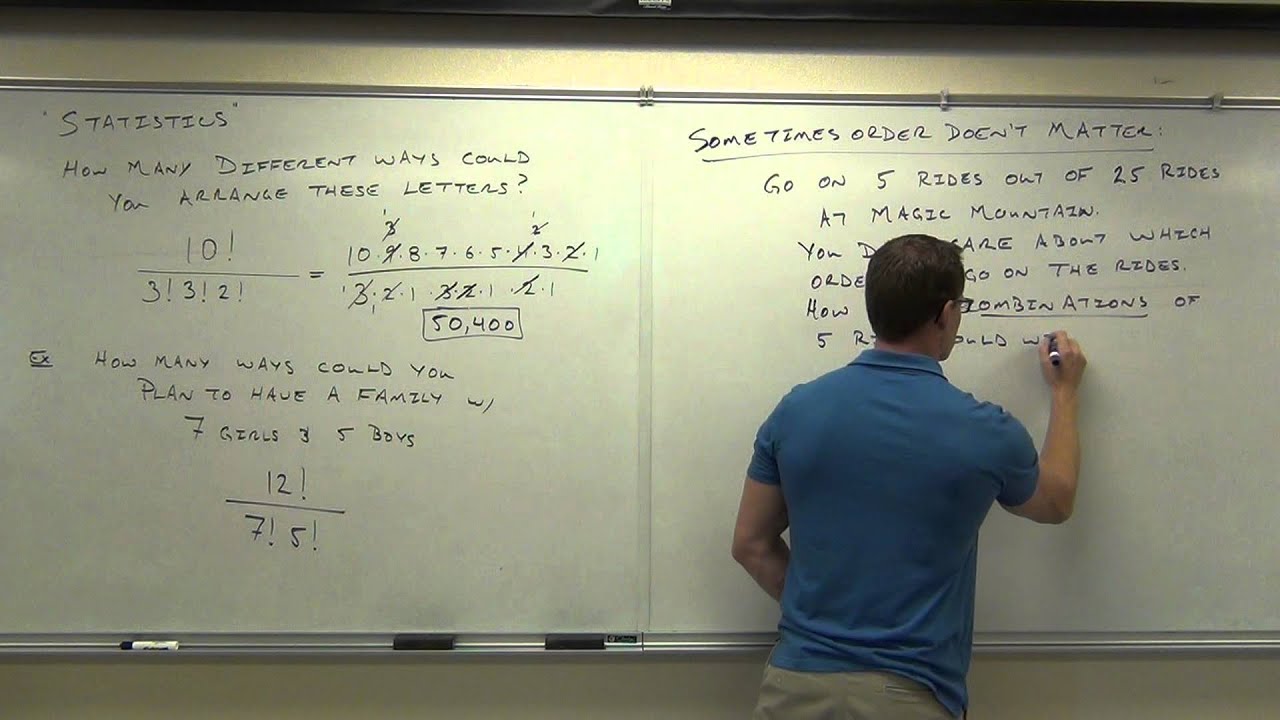 "STATISTICS"
HOW MANY DIFFERENT WAYS COULD
YOU ARRANGE THESE LETTERS?
10!
3! 3! 2!
=
1 3 1 2
10 · 9 · 8 · 7 · 6 · 5 · 4 · 3 · 2 · 1
1 3 · 2 · 1 · 3 · 2 · 1 · 2 · 1
1
50,400
EX HOW MANY WAYS COULD YOU
PLAN TO HAVE A FAMILY W/
7 GIRLS & 5 BOYS
12!
7! 5!
SOMETIMES ORDER DOEN'T MATTER:
GO ON 5 RIDES OUT OF 25 RIDES
AT MAGIC MOUNTAIN.
YOU D CARE ABOUT WHICH
ORDE GO ON THE RIDES.
HOW COMBINATIONS OF
5 R OULD W